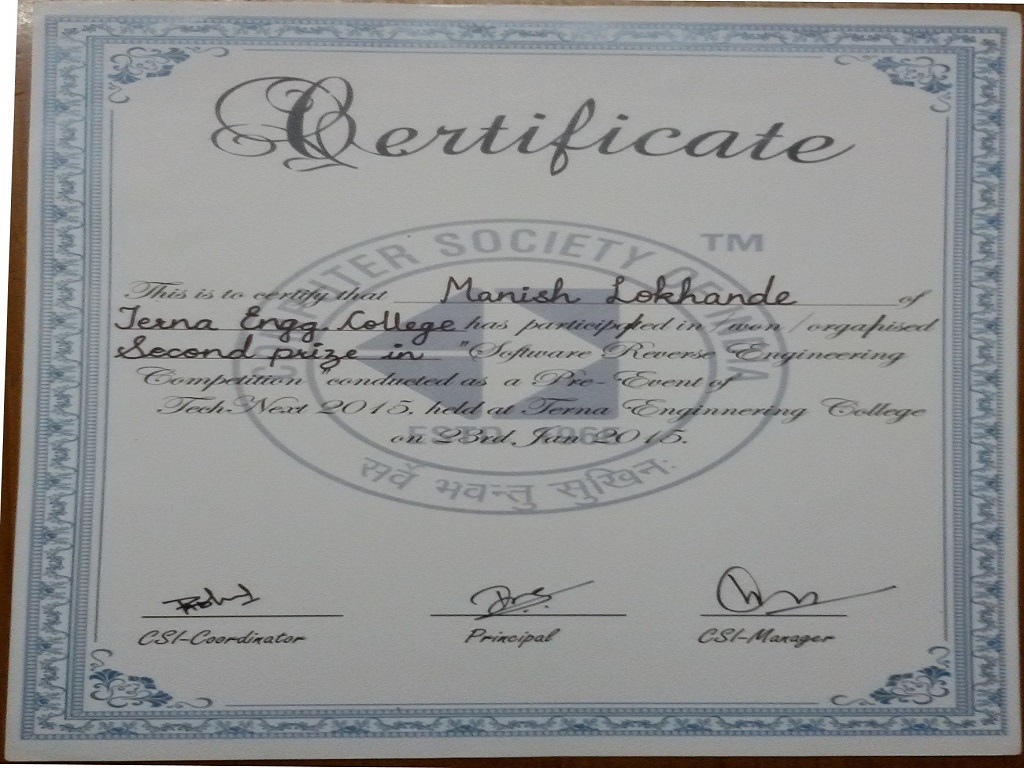 Certificate
COMPUTER SOCIETY OF INDIA
TM
This is to certify that Manish Lokhande of
Terna Engg. College has participated in / won / organised
Second prize in "Software Reverse Engineering
Competition conducted as a Pre-Event of
TechNext 2015. held at Terna Enginnering College
on 23rd Jan 2015.
ESTD 1965
सर्वे भवन्तु सुखिनः
CSI-Coordinator Principal CSI-Manager